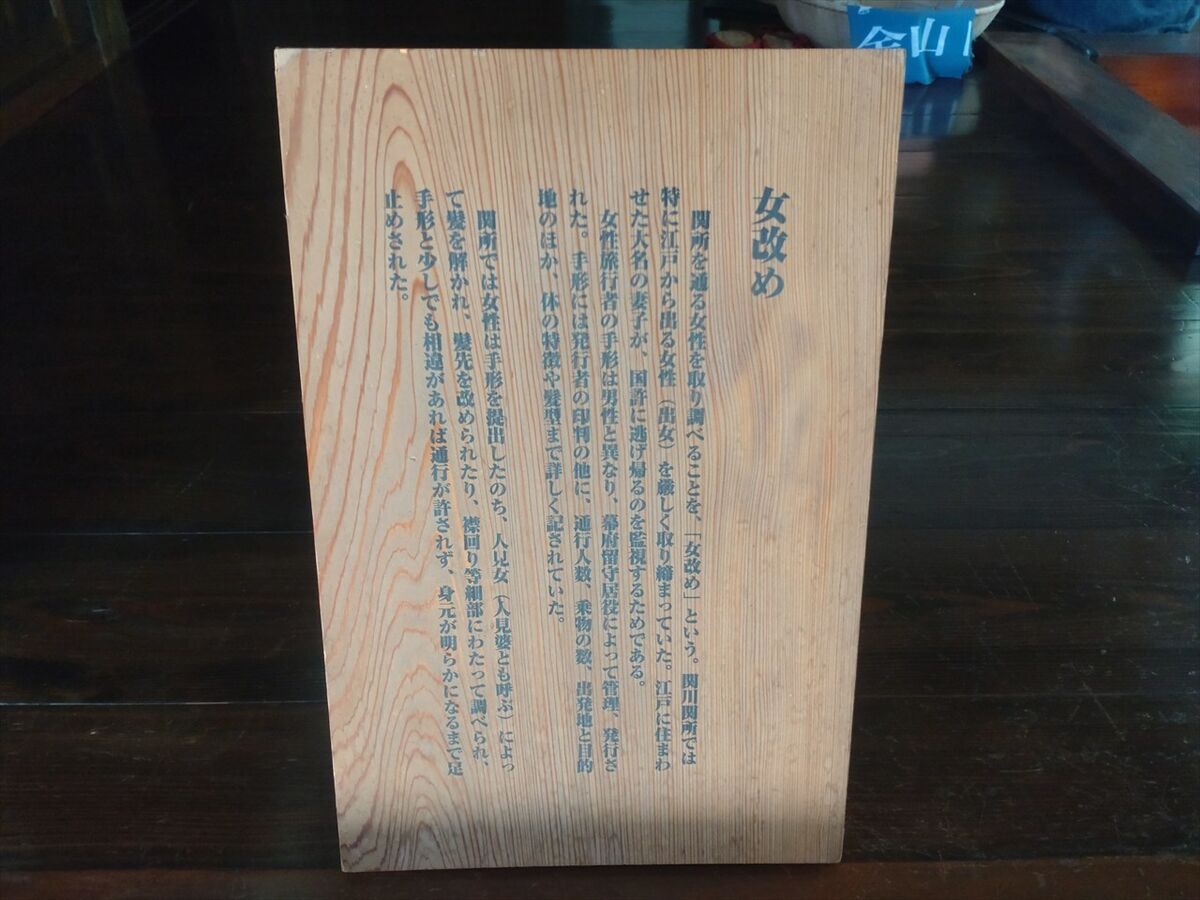 女改め
関所を通る女性を取り調べることを、「女改め」という。関川関所では
特に江戸から出る女性（出女）を厳しく取り締まっていた。江戸に住まわ
せた大名の妻子が、国許に逃げ帰るのを監視するためである。
女性旅行者の手形は男性と異なり、幕府留守居役によって管理、発行さ
れた。手形には発行者の印判の他に、通行人数、乗物の数、出発地と目的
地のほか、体の特徴や髪型まで詳しく記されていた。
関所では女性は手形を提出したのち、人見女（人見婆とも呼ぶ）によっ
て髪を解かれ、髪先を改められたり、襟回り等細部にわたって調べられ、
手形と少しでも相違があれば通行が許されず、身元が明らかになるまで足
止めされた。
金山